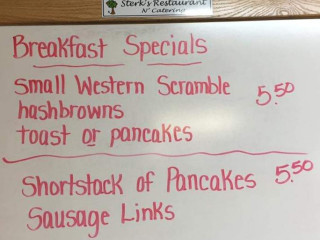 Sterk's Restaurant
N' Catering
Breakfast Specials
small Western Scramble 5.50
hashbrowns
toast or pancakes
Shortstack of Pancakes 5.50
Sausage Links